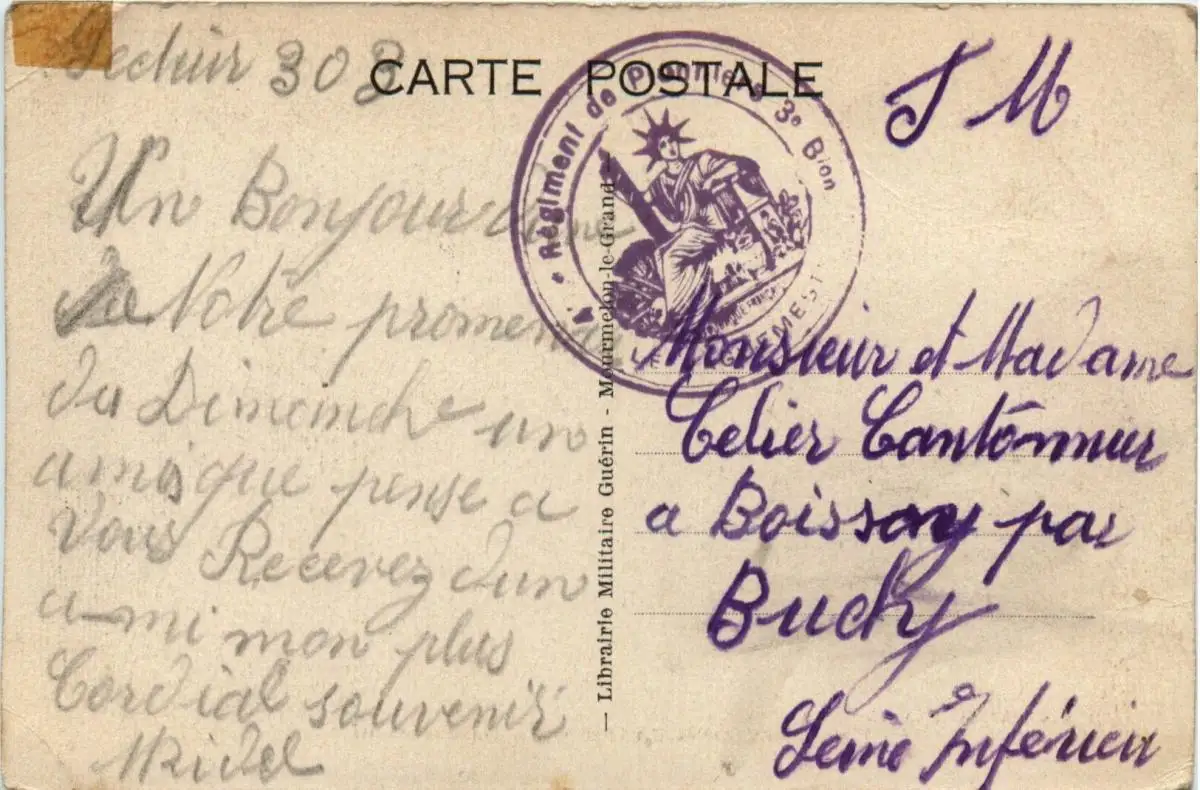 Secteur 303
CARTE POSTALE
F M
Régiment de Pionniers 3e Bion
Un Bonjour
de Notre promenade
du Dimanche un
ami que pense a
Vous Recevez d'un
ami mon plus
Cordial souvenir
— Librairie Militaire Guérin - Mourmelon-le-Grand —
Monsieur et Madame
Celier Cantonnier
a Boissay par
Buchy
Seine Inférieur